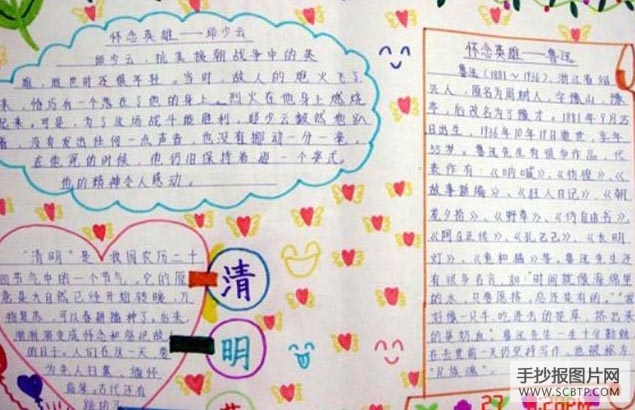 怀念英雄——邱少云
邱少云,抗美援朝战争中的英
雄,逝世时还很年轻。当时,敌人的炮火飞了
来,恰巧有一个落在了他的身上。烈火在他身上燃烧
起来。可是,为了这场战斗能胜利,邱少云毅然
,没有发出任何一点声音,也没有挪动一分一毫。
在他死的时候,他仍旧保持着一个姿式。
他的精神令人感动。
"清明"是我国农历二十
四节气中的一个节气。它的原
意是大自然已经开始转暖,万
物复苏,可以春耕播种了;后来,
渐渐演变成怀念和祭祀故
的日子。人们在这一天,要
为亲人扫墓,缅怀
古代还有
清
明
怀念英雄——鲁迅
鲁迅(1881~1936),浙江省绍
兴人,原名为周树人,字豫山、豫
亭,后改名为了豫才。1881年9月25
日出生,1936年10月19日逝世,享年
55岁。鲁迅先生有很多作品,代
表作有:《呐喊》、《彷徨》、《
故事新编》、《狂人日记》、《朝
花夕拾》、《野草》、《伪自由书》、
《阿Q正传》、《孔乙己》、《长明
灯》、《兔和猫》等,鲁迅先生还
有很多名言,如:"时间就像海绵里
的水,只要愿挤,总还是有的"、"我
好像一只牛,吃进去的是草,挤出来
的是奶血"。鲁迅先生一生十分勤奋,
在去世前一天仍坚持写作,他被称为
"民族魂"。
手抄报图片网
WWW.SCBTP.COM